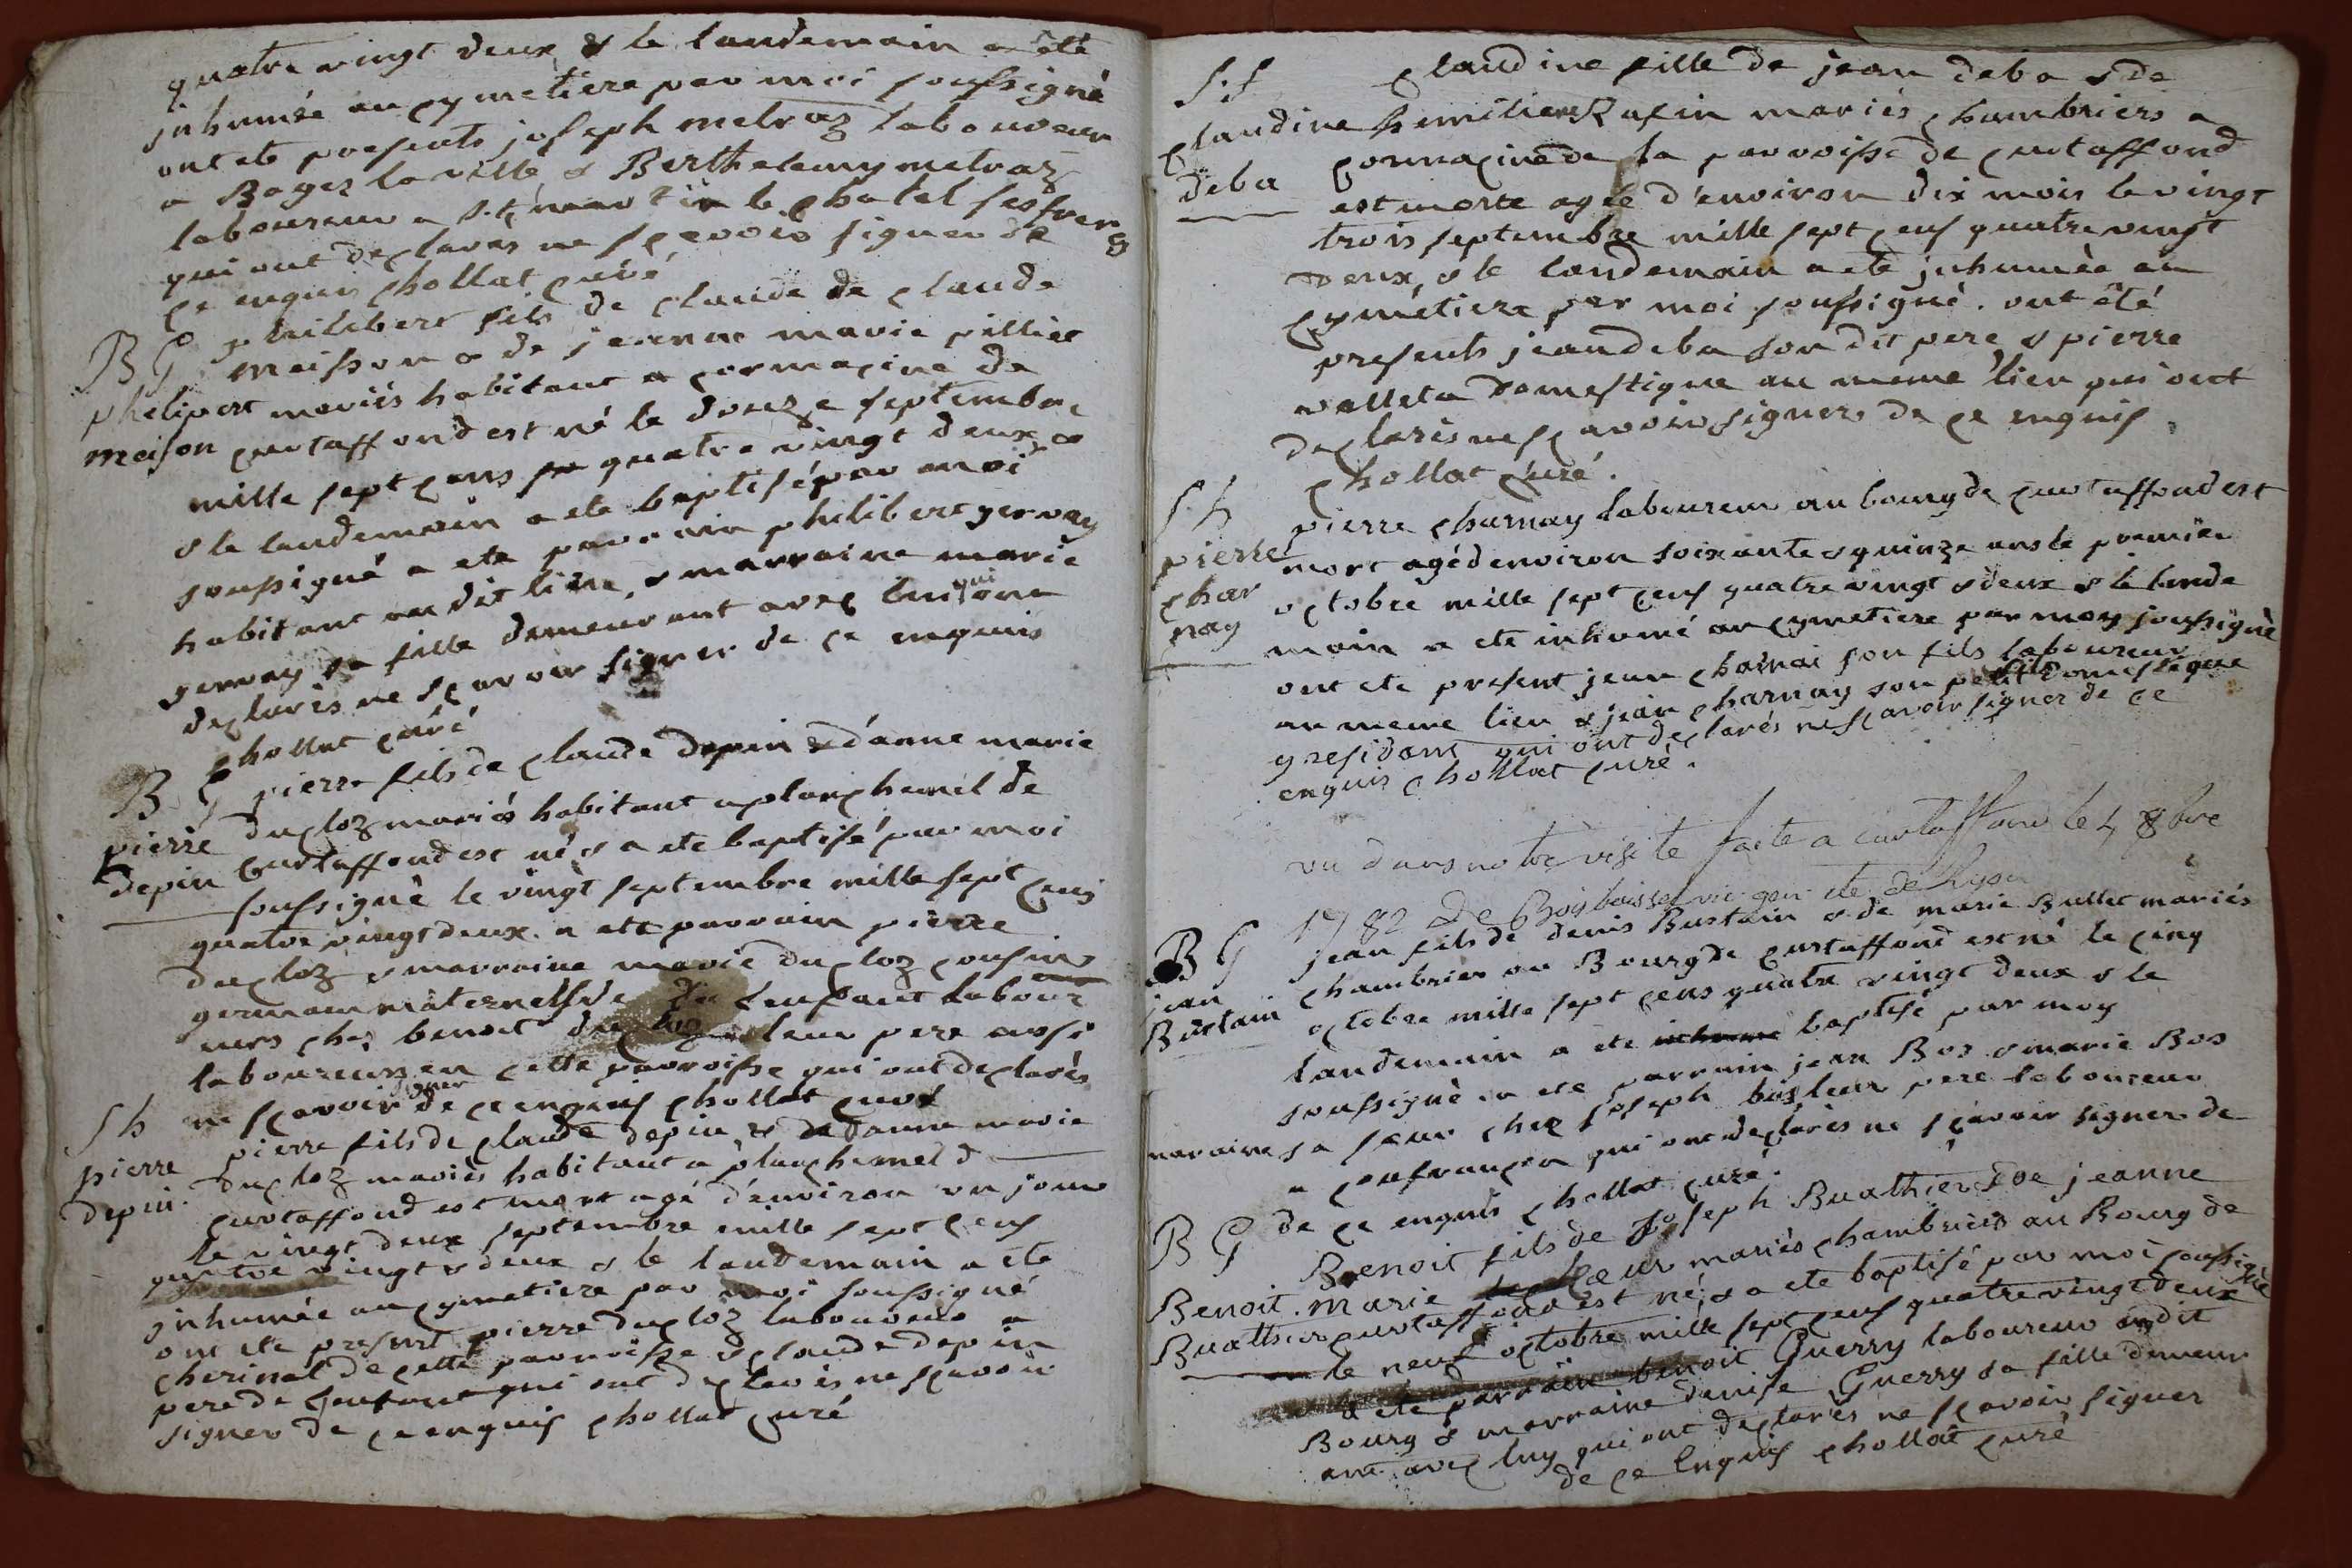 quatre vingt deux & le landemain a été
inhumée au cymetiere par moi soussigné
ont ete presents joseph metraz laboureur
a Bagez la ville & Berthelemy metraz
laboureur a St martin le chatel ses freres
qui ont declarés ne scavoir signer de
ce enquis chollat curé
B G philibert fils de claude de claude
maisson & de jeanne marie pillier
phelipert mariés habitant a cormacine de
maison curtaffond est né le douze septembre
mille sept cens quatre vingt deux
& le landemain a ete baptisé par moi
soussigné a ete parrain philibert gervay
habitant au dit lieu, & marraine marie
gervay sa fille demeurant avec lui qui ont
declarés ne scavoir signer de ce enquis
chollat curé
B G pierre fils de claude depin & d'anne marie
pierre ducloz mariés habitant a planchemel de
depin Curtaffond est né & a ete baptisé par moi
soussigné le vingt septembre mille sept cens
quatre vingt deux. a ete parrain pierre
ducloz & marraine marie ducloz cousins
germain maternels de l'enfant labour
eurs chez benoit ducloz leur pere aussi
laboureurs en cette parroisse qui ont declarés
Sh ne scavoir signer de ce enquis chollat curé
pierre pierre fils de claude depin & d'anne marie
depin. ducloz mariés habitant a planchemel d
curtaffond est mort agé d'environ un jour
le vingt deux septembre mille sept cens
quatre vingt & deux & le landemain a ete
inhumée au cymetiere par moi soussigné
ont ete present pierre ducloz laboureur a
cherinal de cette parroisse & claude depin
pere de l'enfant qui ont declarés ne scavoir
signer de ce enquis chollat curé
S.f claudine fille de jean deba & de
claudine mariés chambriers a
deba cormacine de la parroisse de curtaffond
est morte agée d'environ dix mois le vingt
trois septembre mille sept cens quatre vingt
deux, & le landemain a ete inhumée au
cymétiere par moi soussigné. ont été
presents jean deba son dit pere & pierre
valleta domestique au même lieu qui ont
declarés ne scavoir signer de ce enquis
chollat curé.
Sh pierre charnay laboureur au bourg de curtaffond est
pierre mort agé d environ soixante & quinze ans le premier
char octobre mille sept cens quatre vingt & deux & le lande
nay main a ete inhumé au cymetiere par moy soussigné
ont ete present jean charnai son fils laboureur
au meme lieu & jean charnay son petit fils domestique
y residant qui ont declarés ne scavoir signer de ce
enquis chollat curé.
vu dans notre visite faite a curtaffond le 4 8bre
1782 De Boisboissel vic gen de Lyon
B G jean fils de denis Bustain & de marie Bullet mariés
jean chambrier au Bourg de curtaffond est né le cinq
Bustain octobre mille sept cens quatre vingt deux & le
landemain a ete inhumé baptisé par moy
soussigné. a ete parrain jean Bos & marie Bos
maraine sa seur chez joseph bos leur pere laboureur
a confrançon qui ont declarés ne scavoir signer de
de ce enquis chollat curé.
B G Benoit fils de joseph Buathier & de jeanne
Benoit. marie mariés chambriers au Bourg de
Buathier curtaffond est né & a ete baptisé par moi soussigné
le neuf octobre mille sept cens quatre vingt deux
a ete parrain benoit Guerry laboureur au dit
Bourg & marraine denise Guerry sa fille demeur
ant avec luy qui ont declarés ne scavoir signer
de ce Enquis chollat curé